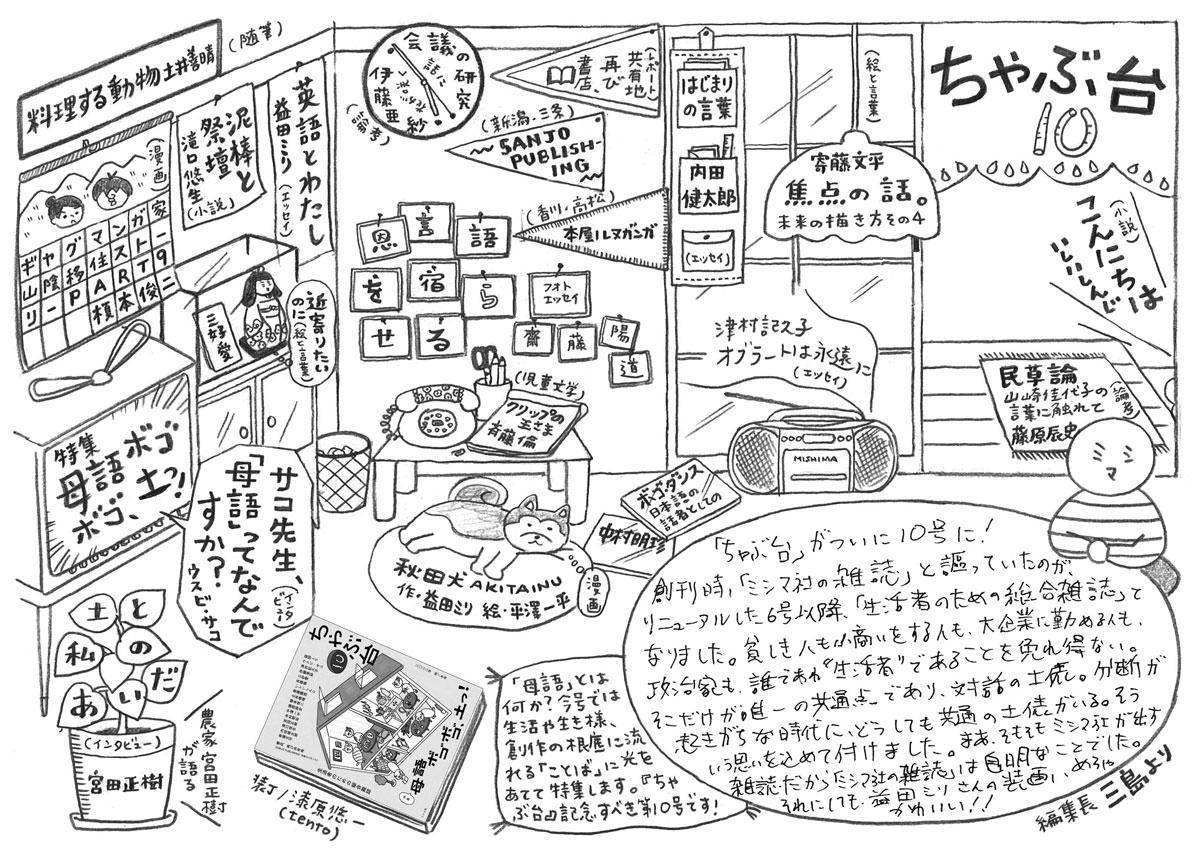 料理する動物 土井善晴
(随筆)
漫画
ギャグマンガ家
山陰移住スト一
リーPART9
榎本俊二
泥棒と
祭壇
滝口悠生
(小説)
英語とわたし
益田ミリ
(エッセイ)
会議の研究
伊藤亜紗
(論考)
(レポート)
共有地
再び
書店、
(新潟・三条)
SANJO
PUBLISH-
ING
(香川・高松)
本屋ルヌガンガ
はじまり
の言葉
内田
健太郎
(エッセイ)
(絵と言葉)
寄藤文平
焦点の話。
未来の描き方その4
ちゃぶ台
10
(小説)
こんにちは
いしいしんじ
恩言語
を宿ら
せる
フォト
エッセイ
齋藤陽道
三好愛
近寄りたい
のに
(絵と言葉)
津村記久子
オブラートは永遠に
(エッセイ)
民草論
(論考)
山崎佳代子の
言葉に触れて
藤原辰史
(児童文学)
クリップの
王さま
斉藤倫
MISHIMA
ミシマ
特集
母語ボゴ
ボゴ、土?!
サコ先生、
「母語」ってなんで
すか?
(インタビュー)
ウスビ・サコ
ボゴ・ダンス
日本語の
話者としての
中村明珍
秋田犬 AKITAINU
作・益田ミリ 絵・平澤一平
漫画
土と
私の
あいだ
(インタビュー)
宮田正樹
農家・宮田正樹
が語る
ちゃぶ台
10
母語ボゴボゴ、土っ!
装丁/漆原悠一
(tento)
「母語」とは
何か?今号では
生活や生き様、
創作の根底に流
れる「ことば」に光を
あてて特集します。『ちゃ
ぶ台』記念すべき第10号です!
「ちゃぶ台」がついに10号に!
創刊時、「ミシマ社の雑誌」と謳っていたのが、
リニューアルした6号以降、「生活者のための総合雑誌」と
なりました。貧しき人も小商いをする人も、大企業に勤める人も、
政治家も、誰であれ“生活者”であることを免れ得ない。
そこだけが唯一の共通点であり、対話の土俵。分断が
起きがちな時代に、どうしても共通の土俵がいる。そう
いう思いを込めて付けました。まあ、そもそもミシマ社が出す
雑誌だから「ミシマ社の雑誌」は自明なことでした。
それにしても、益田ミリさんの装画、めちゃ
かわいい!!
編集長 三島より